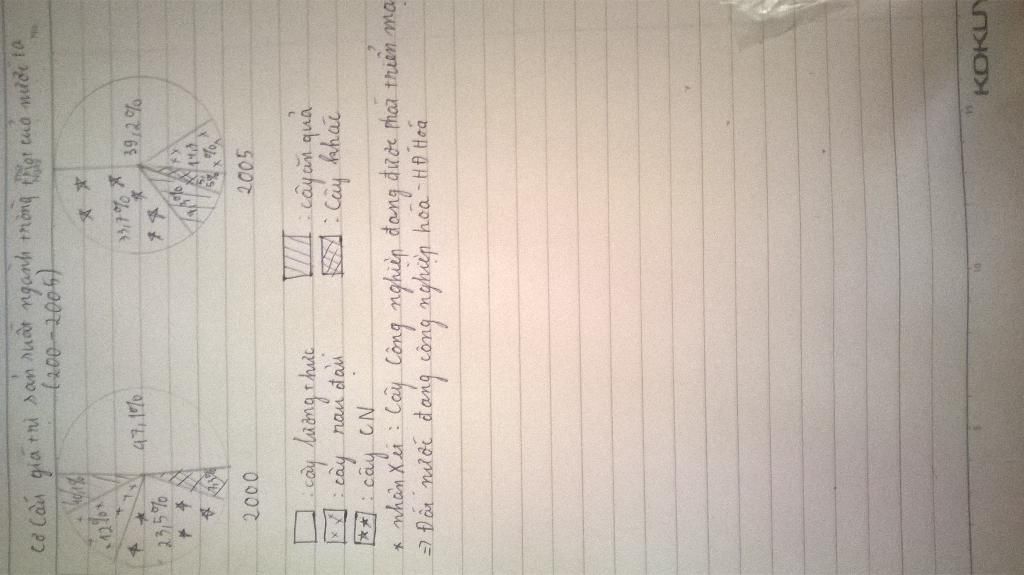 Cơ Cấu giá trị sản xuất ngành trồng trọt của nước ta
(200-2005)
47,1%
10,1%
12%
23,5%
7,3%
2000
39,2%
33,7%
2005
: cây lương thực
: cây rau đậu
: cây CN
: cây ăn quả
: cây khác
* nhận xét: Cây Công nghiệp đang được phát triển
=> Đất nước đang công nghiệp hóa - HĐ Hoá
KOKUY
5
10
15